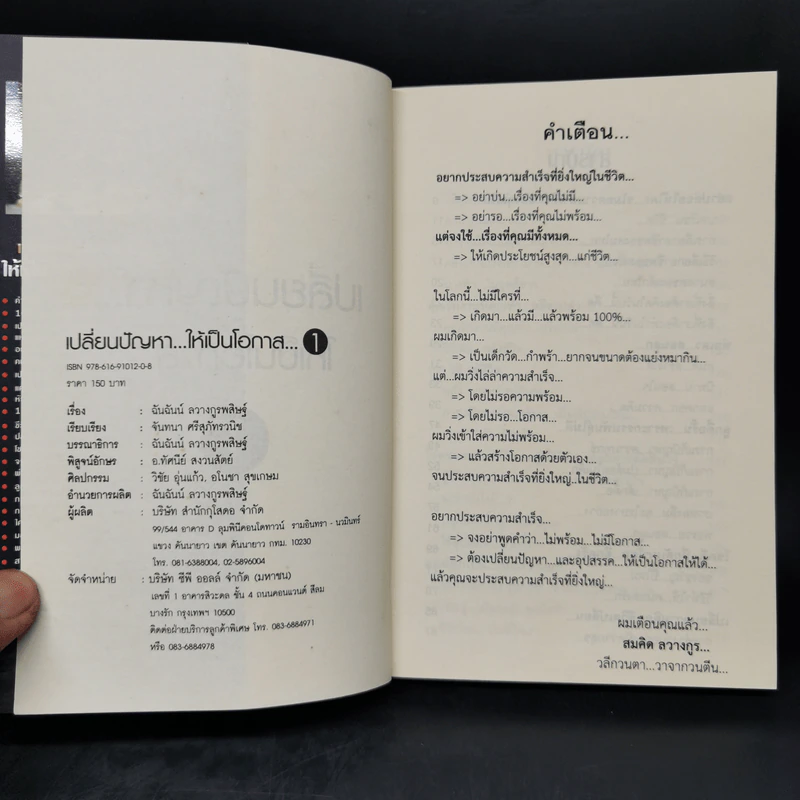 เปลี่ยนปัญหา...ให้เป็นโอกาส... 1
ISBN 978-616-91012-0-8
ราคา 150 บาท
เรื่อง : ฉันฉันน์ ลวางกูรพสิษฐ์
เรียบเรียง : จันทนา ศรีสุภัทรวนิช
บรรณาธิการ : ฉันฉันน์ ลวางกูรพสิษฐ์
พิสูจน์อักษร : อ.ทัศนีย์ สงวนสัตย์
ศิลปกรรม : วิชัย อุ่นแก้ว, อโนชา สุขเกษม
อำนวยการผลิต : ฉันฉันน์ ลวางกูรพสิษฐ์
ผู้ผลิต : บริษัท สำนักกุโสดอ จำกัด
99/544 อาคาร D ลุมพินีคอนโดทาวน์ รามอินทรา - นวมินทร์
แขวง คันนายาว เขต คันนายาว กทม. 10230
โทร. 081-6388004, 02-5896004
จัดจำหน่าย : บริษัท ซีพี ออลล์ จำกัด (มหาชน)
เลขที่ 1 อาคารสิวะดล ชั้น 4 ถนนคอนแวนต์ สีลม
บางรัก กรุงเทพฯ 10500
ติดต่อฝ่ายบริการลูกค้าพิเศษ โทร. 083-6884971
หรือ 083-6884978
คำเตือน...
อยากประสบความสำเร็จที่ยิ่งใหญ่ในชีวิต...
=> อย่าบ่น...เรื่องที่คุณไม่มี...
=> อย่ารอ...เรื่องที่คุณไม่พร้อม...
แต่จงใช้...เรื่องที่คุณมีทั้งหมด...
=> ให้เกิดประโยชน์สูงสุด...แก่ชีวิต...
ในโลกนี้...ไม่มีใครที่...
=> เกิดมา...แล้วมี...แล้วพร้อม 100%...
ผมเกิดมา...
=> เป็นเด็กวัด...กำพร้า...ยากจนขนาดต้องแย่งหมากิน...
แต่...ผมวิ่งไล่ล่าความสำเร็จ...
=> โดยไม่รอความพร้อม...
=> โดยไม่รอ...โอกาส...
ผมวิ่งเข้าใส่ความไม่พร้อม...
=> แล้วสร้างโอกาสด้วยตัวเอง...
จนประสบความสำเร็จที่ยิ่งใหญ่..ในชีวิต...
อยากประสบความสำเร็จ...
=> จงอย่าพูดคำว่า...ไม่พร้อม...ไม่มีโอกาส...
=> ต้องเปลี่ยนปัญหา...และอุปสรรค...ให้เป็นโอกาสให้ได้...
แล้วคุณจะประสบความสำเร็จที่ยิ่งใหญ่...
ผมเตือนคุณแล้ว...
สมคิด ลวางกูร...
วลีกวนตา...วาจากวนตีน...